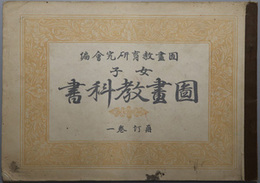 圖畫教育研究會編
女子
圖畫教科書
訂 卷一